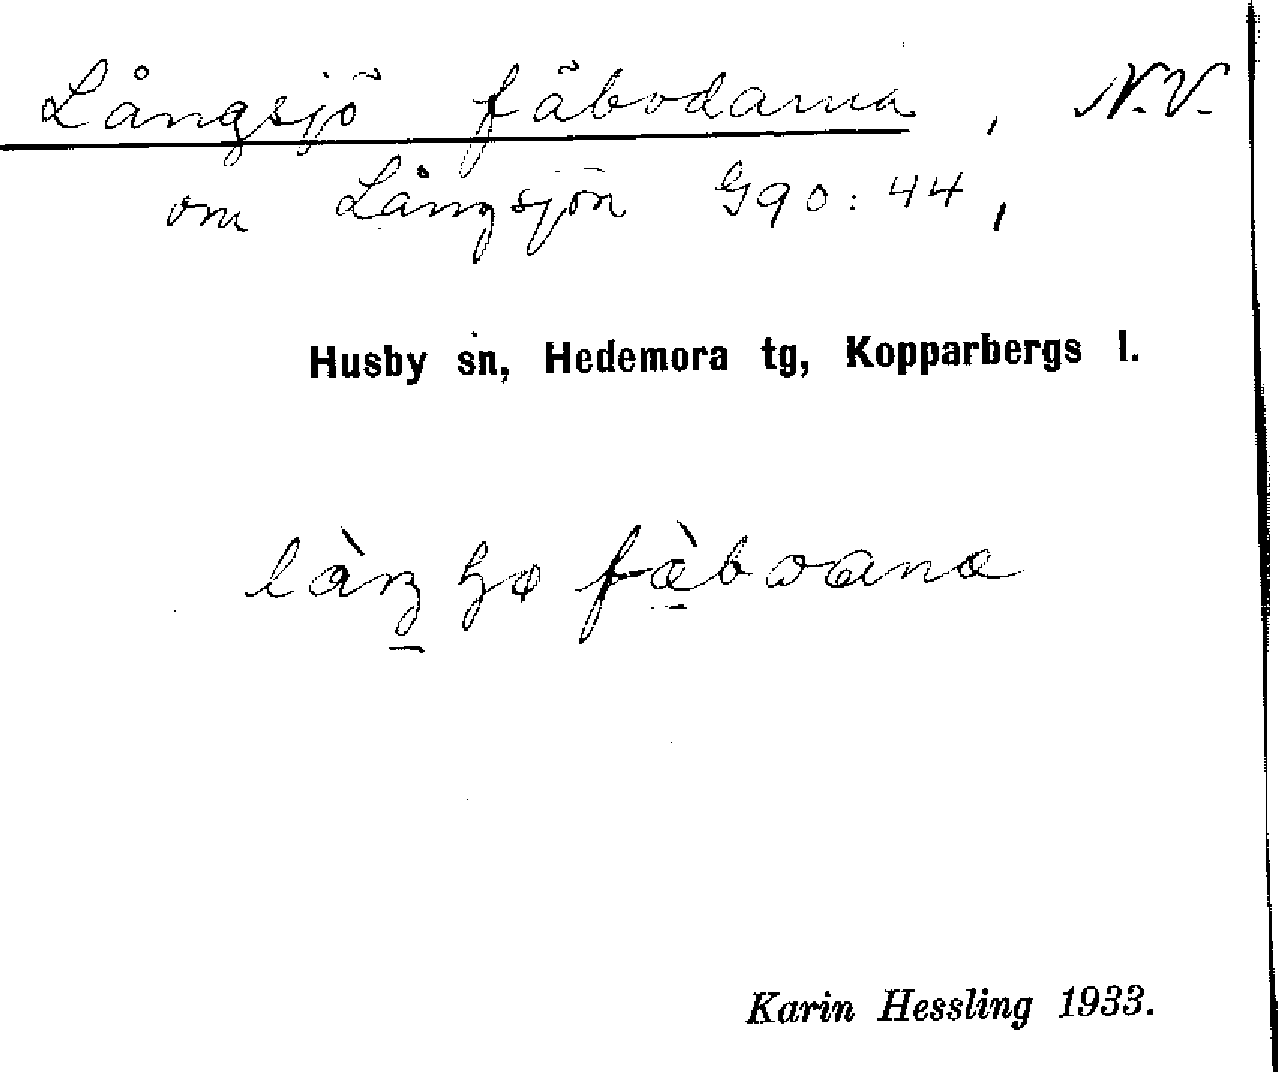 Långsjö fäbodarna, N.V.
om Långsjön G90:44,
Husby sn, Hedemora tg, Kopparbergs l.
Karin Hessling 1933.